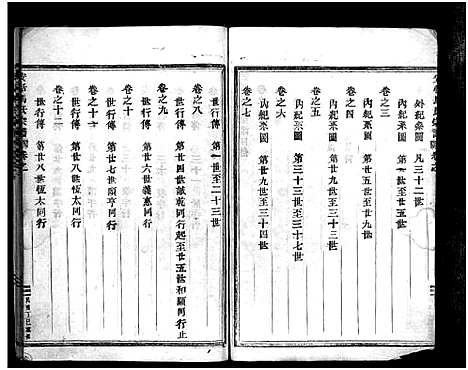 外紀系圖 凡三十二世
卷之三
內紀系圖 世五世至世四世
卷之四
內紀系圖 第廿五世至廿九世
卷之五
內紀系圖 第廿九世至三十三世
卷之六
內紀系圖 第三十三世至三十七世
卷之七
內紀系圖 第廿九世至三十四世
卷之八
世行傳 第一世至二十三世
卷之九
世行傳 第廿四世誠乾同行起至廿五世和顯同行止
卷之十
世行傳 第廿六世義惠同行
卷之十一
世行傳 第廿七世頤亨同行
卷之十二
世行傳 第廿八世恆太同行